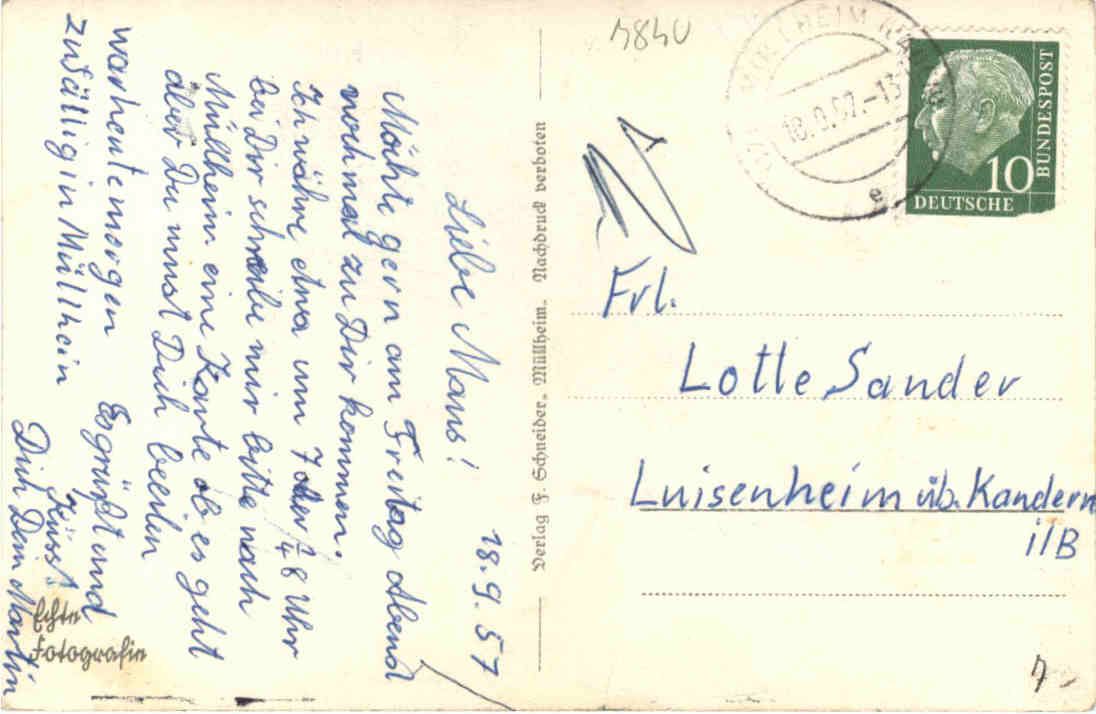 18.9.57
Liebe Maus!
Möchte gern am Freitag Abend
nochmal zu Dir kommen.
Ich währe etwa um 7 oder 1/4 8 Uhr
bei Dir schreibe mir bitte nach
Müllheim eine Karte ob es geht
aber Du must Dich beeilen
war heute morgen
zufällig in Müllheim
Es grüßt und
Küsst
Dich Dein Martin
Echte
Fotografie
Verlag F. Schneider, Müllheim. Nachdruck verboten
MÜLLHEIM
18.9.57.-13
e
10
DEUTSCHE
BUNDESPOST
Frl.
Lotte Sander
Luisenheim üb. Kandern
i/B